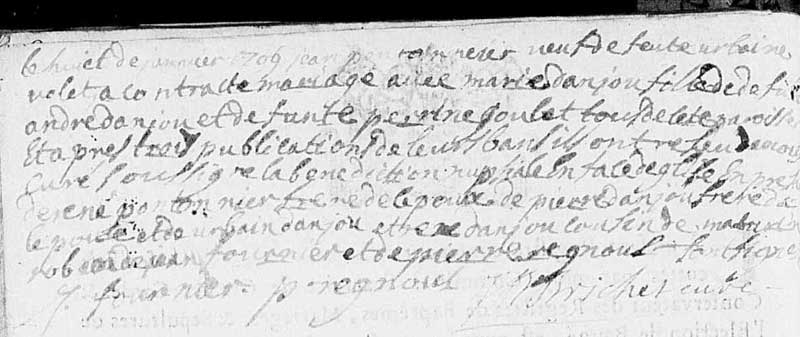 le huict de janvier 1709 jean pontonnier veuf de feüe urbaine
valeta contracte mariage avec marie danjou fille de def
andre danjou et defunte perrine goulet tous de cete paroisse
Et apres trois publications de leurs bans ils ont receu de nous
cure soussigne la benediction nuptiale en face deglise En pres
de rene pontonnier frere de lepoux de pierre danjou frere de
lepouse et de urbain danjou et rene danjou cousin de mathurin
rob de jean fournier et de pierre regnoul
J. fournier p regnoul Richer cure
Conservateur des Registres de Baptêmes, Mariages, & Sepultures de
l'Election de